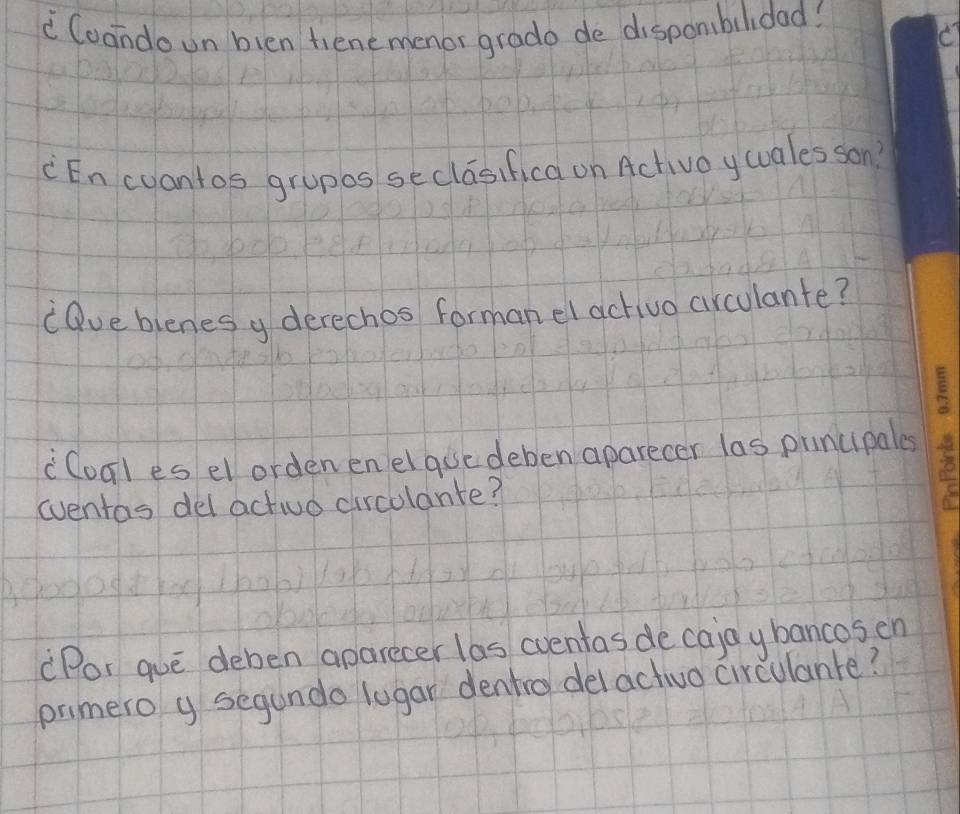 ¿Cuándo un bien tiene menor grado de disponibilidad?
¿En cuantos grupos se clásifica un Activo y cuales son?
¿Que bienes y derechos forman el activo circulante?
¿Cuál es el orden en el que deben aparecer las principales
cuentas del activo circulante?
¿Por qué deben aparecer las cuentas de caja y bancos en
primero y segundo lugar dentro del activo circulante?
PnPoint 0.7mm